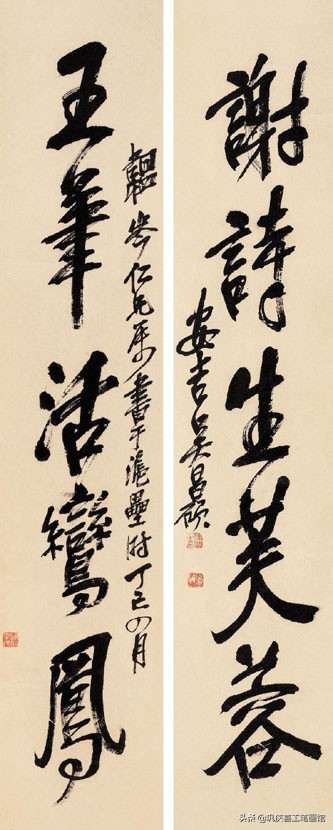 謝詩生芙蓉
安吉吳昌碩
岑仁兄属書于滬壘時丁巳四月
王筆活鸞鳳
头条 @巩庆喜工笔画馆